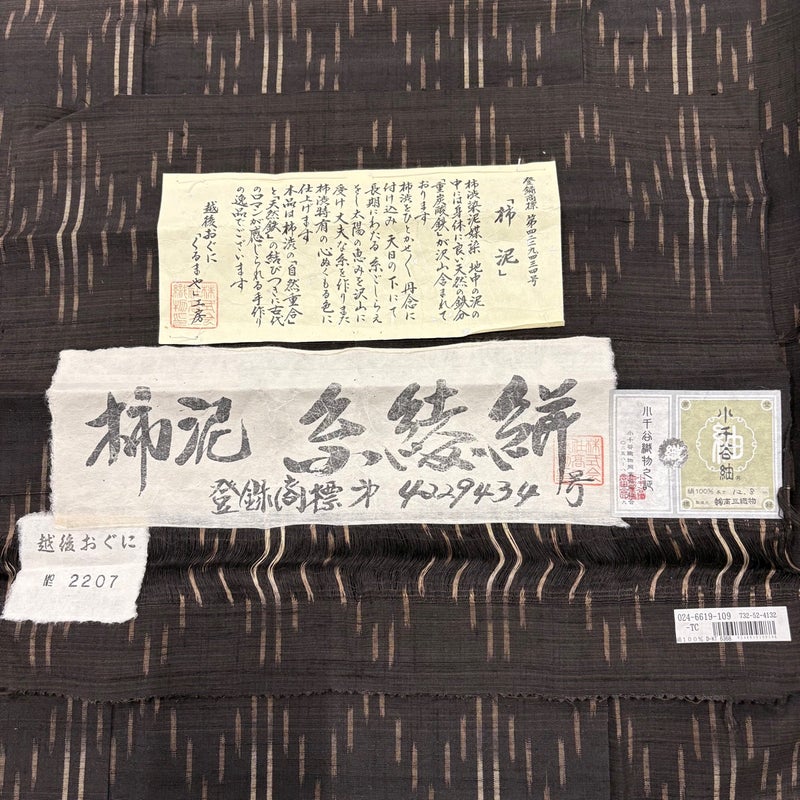 登録商標 第四二二九四三四号
「柿泥」
柿渋染泥媒染 地中の泥の
中には身体に良い天然の鉄分
「重炭酸鉄」が沢山含まれて
おります
柿渋をひとかせづく 丹念に
付け込み 天日の下にて
長期にわたる 糸ごしらえ
をし太陽の恵みを沢山に
受け 丈夫な糸を作りまた
柿渋特有の心ぬくもる色に
仕上げます
本品は柿渋の「自然重合」
と「天然鉄」の結びつきに古代
のロマンが感じられる手作り
の逸品でございます
越後おぐに
「くるまや」工房
柿泥 糸綾絣
登録商標 第 4229434 号
小千谷織物之証
小千谷紬
絹100%
12.8
製造元 ㈱高三織物
越後おぐに
2207
024-6619-109 732-52-4132
-TC